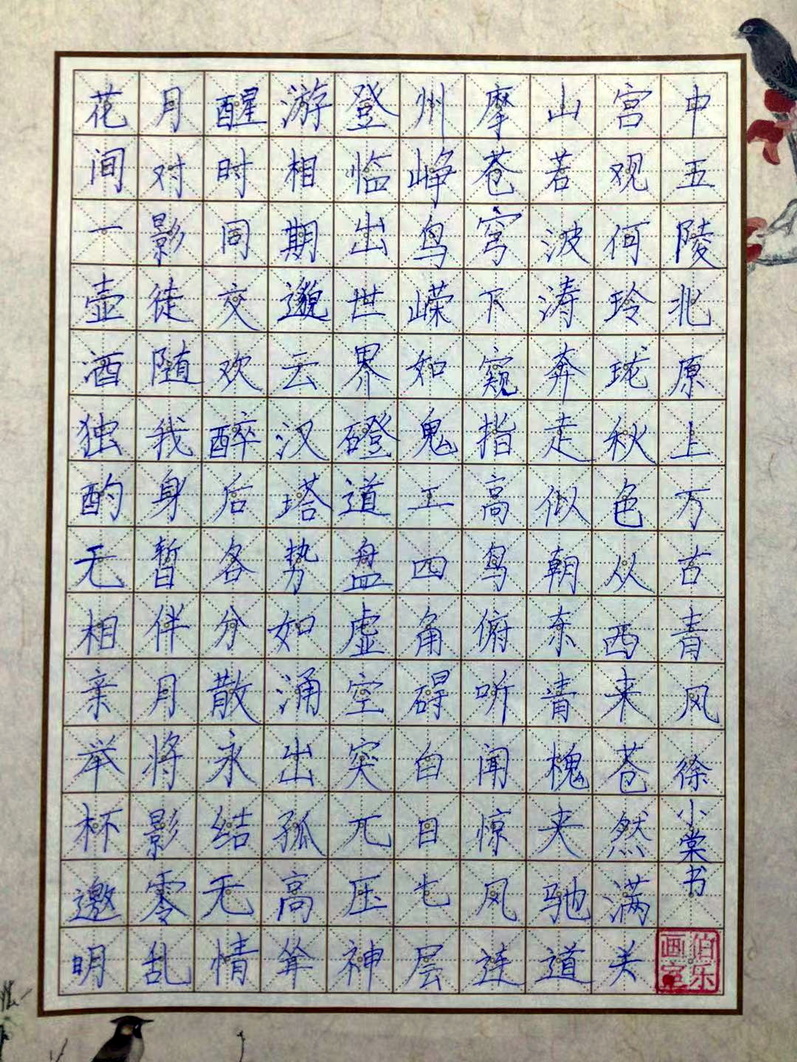 花间一壶酒独酌无相亲举杯邀明
月对影徒随我身暂伴月将影零乱
醒时同交欢醉后各分散永结无情
游相期邈云汉塔势如涌出孤高耸
登临出世界磴道盘虚空突兀压神
州峥鸟嵘如鬼工四角碍白日七层
摩苍穹下窥指高鸟俯听闻惊风连
山若波涛奔走似朝东青槐夹驰道
宫观何玲珑秋色从西来苍然满关
中五陵北原上万古青风徐小棠书
伯乐画室